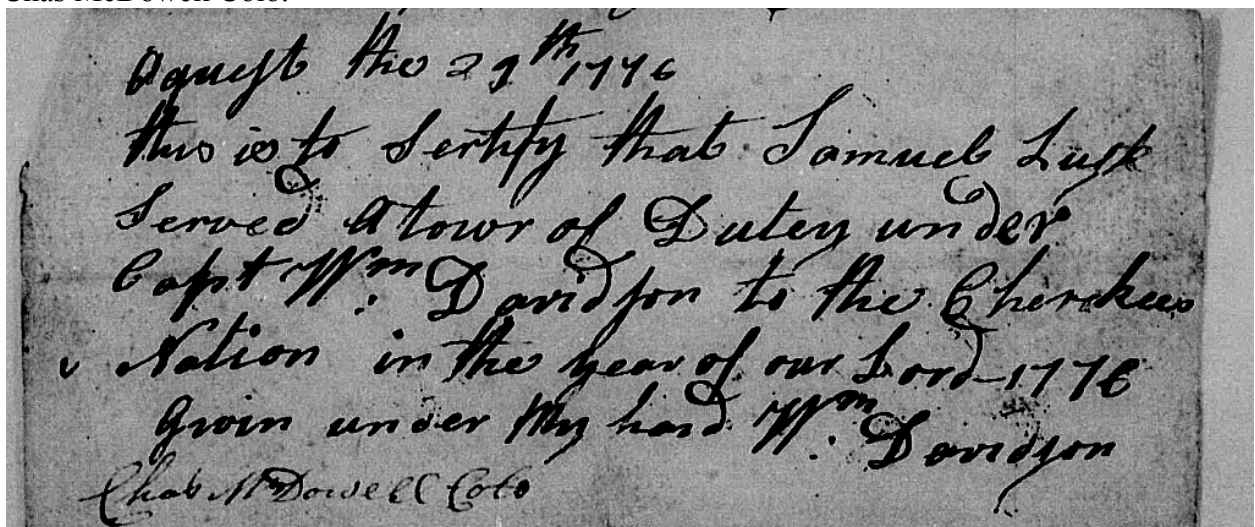 Chas McDowell Colo.
Agust the 29th 1776
this is to Sertify that Samuel Lusk
Served A towr of Dutey under
Capt Wm. Davidson to the Cherekees
Nation in the year of our Lord - 1776
Givin under My hand Wm. Davidson
Chas McDowell Colo